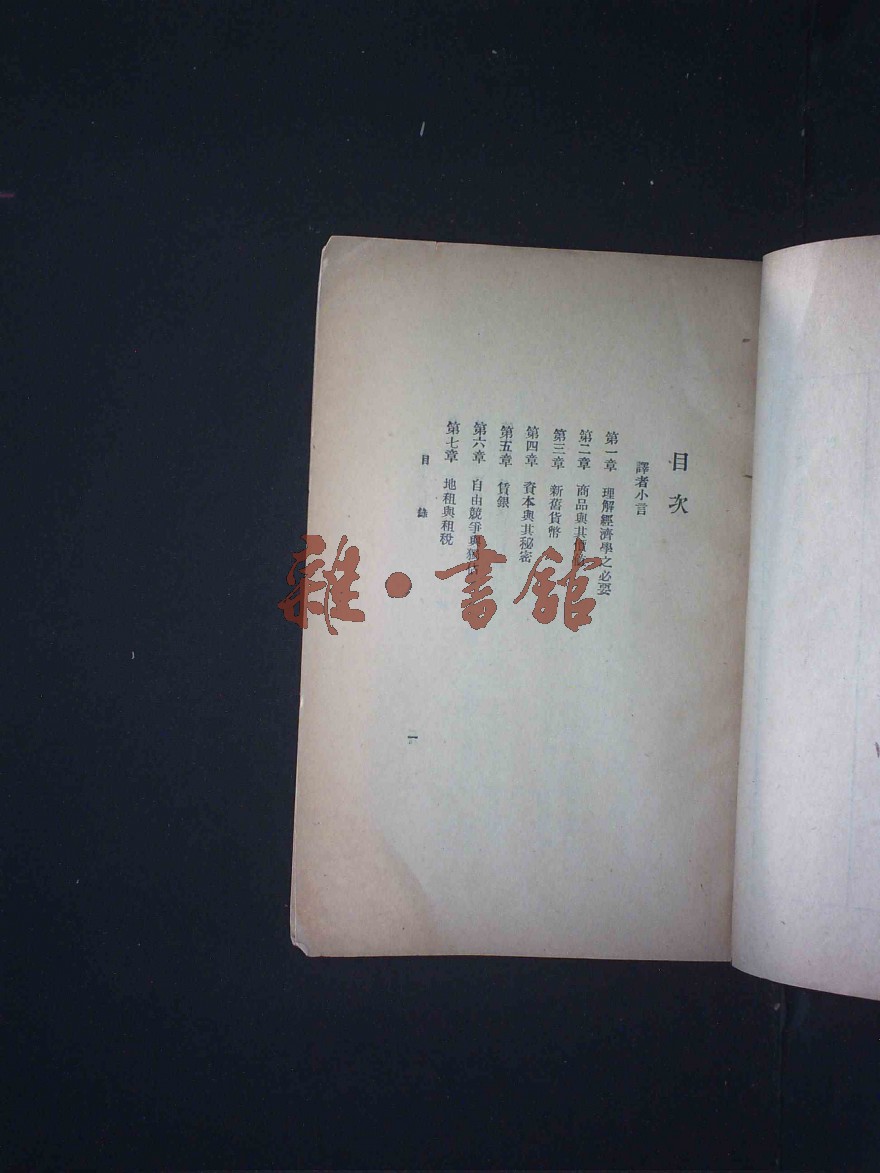 目次
譯者小言
第一章 理解經濟學之必要
第二章 商品與其價
第三章 新舊貨幣
第四章 資本與其秘密
第五章 賃銀
第六章 自由競爭與獨
第七章 地租與租稅
目 錄
一
雜·書館